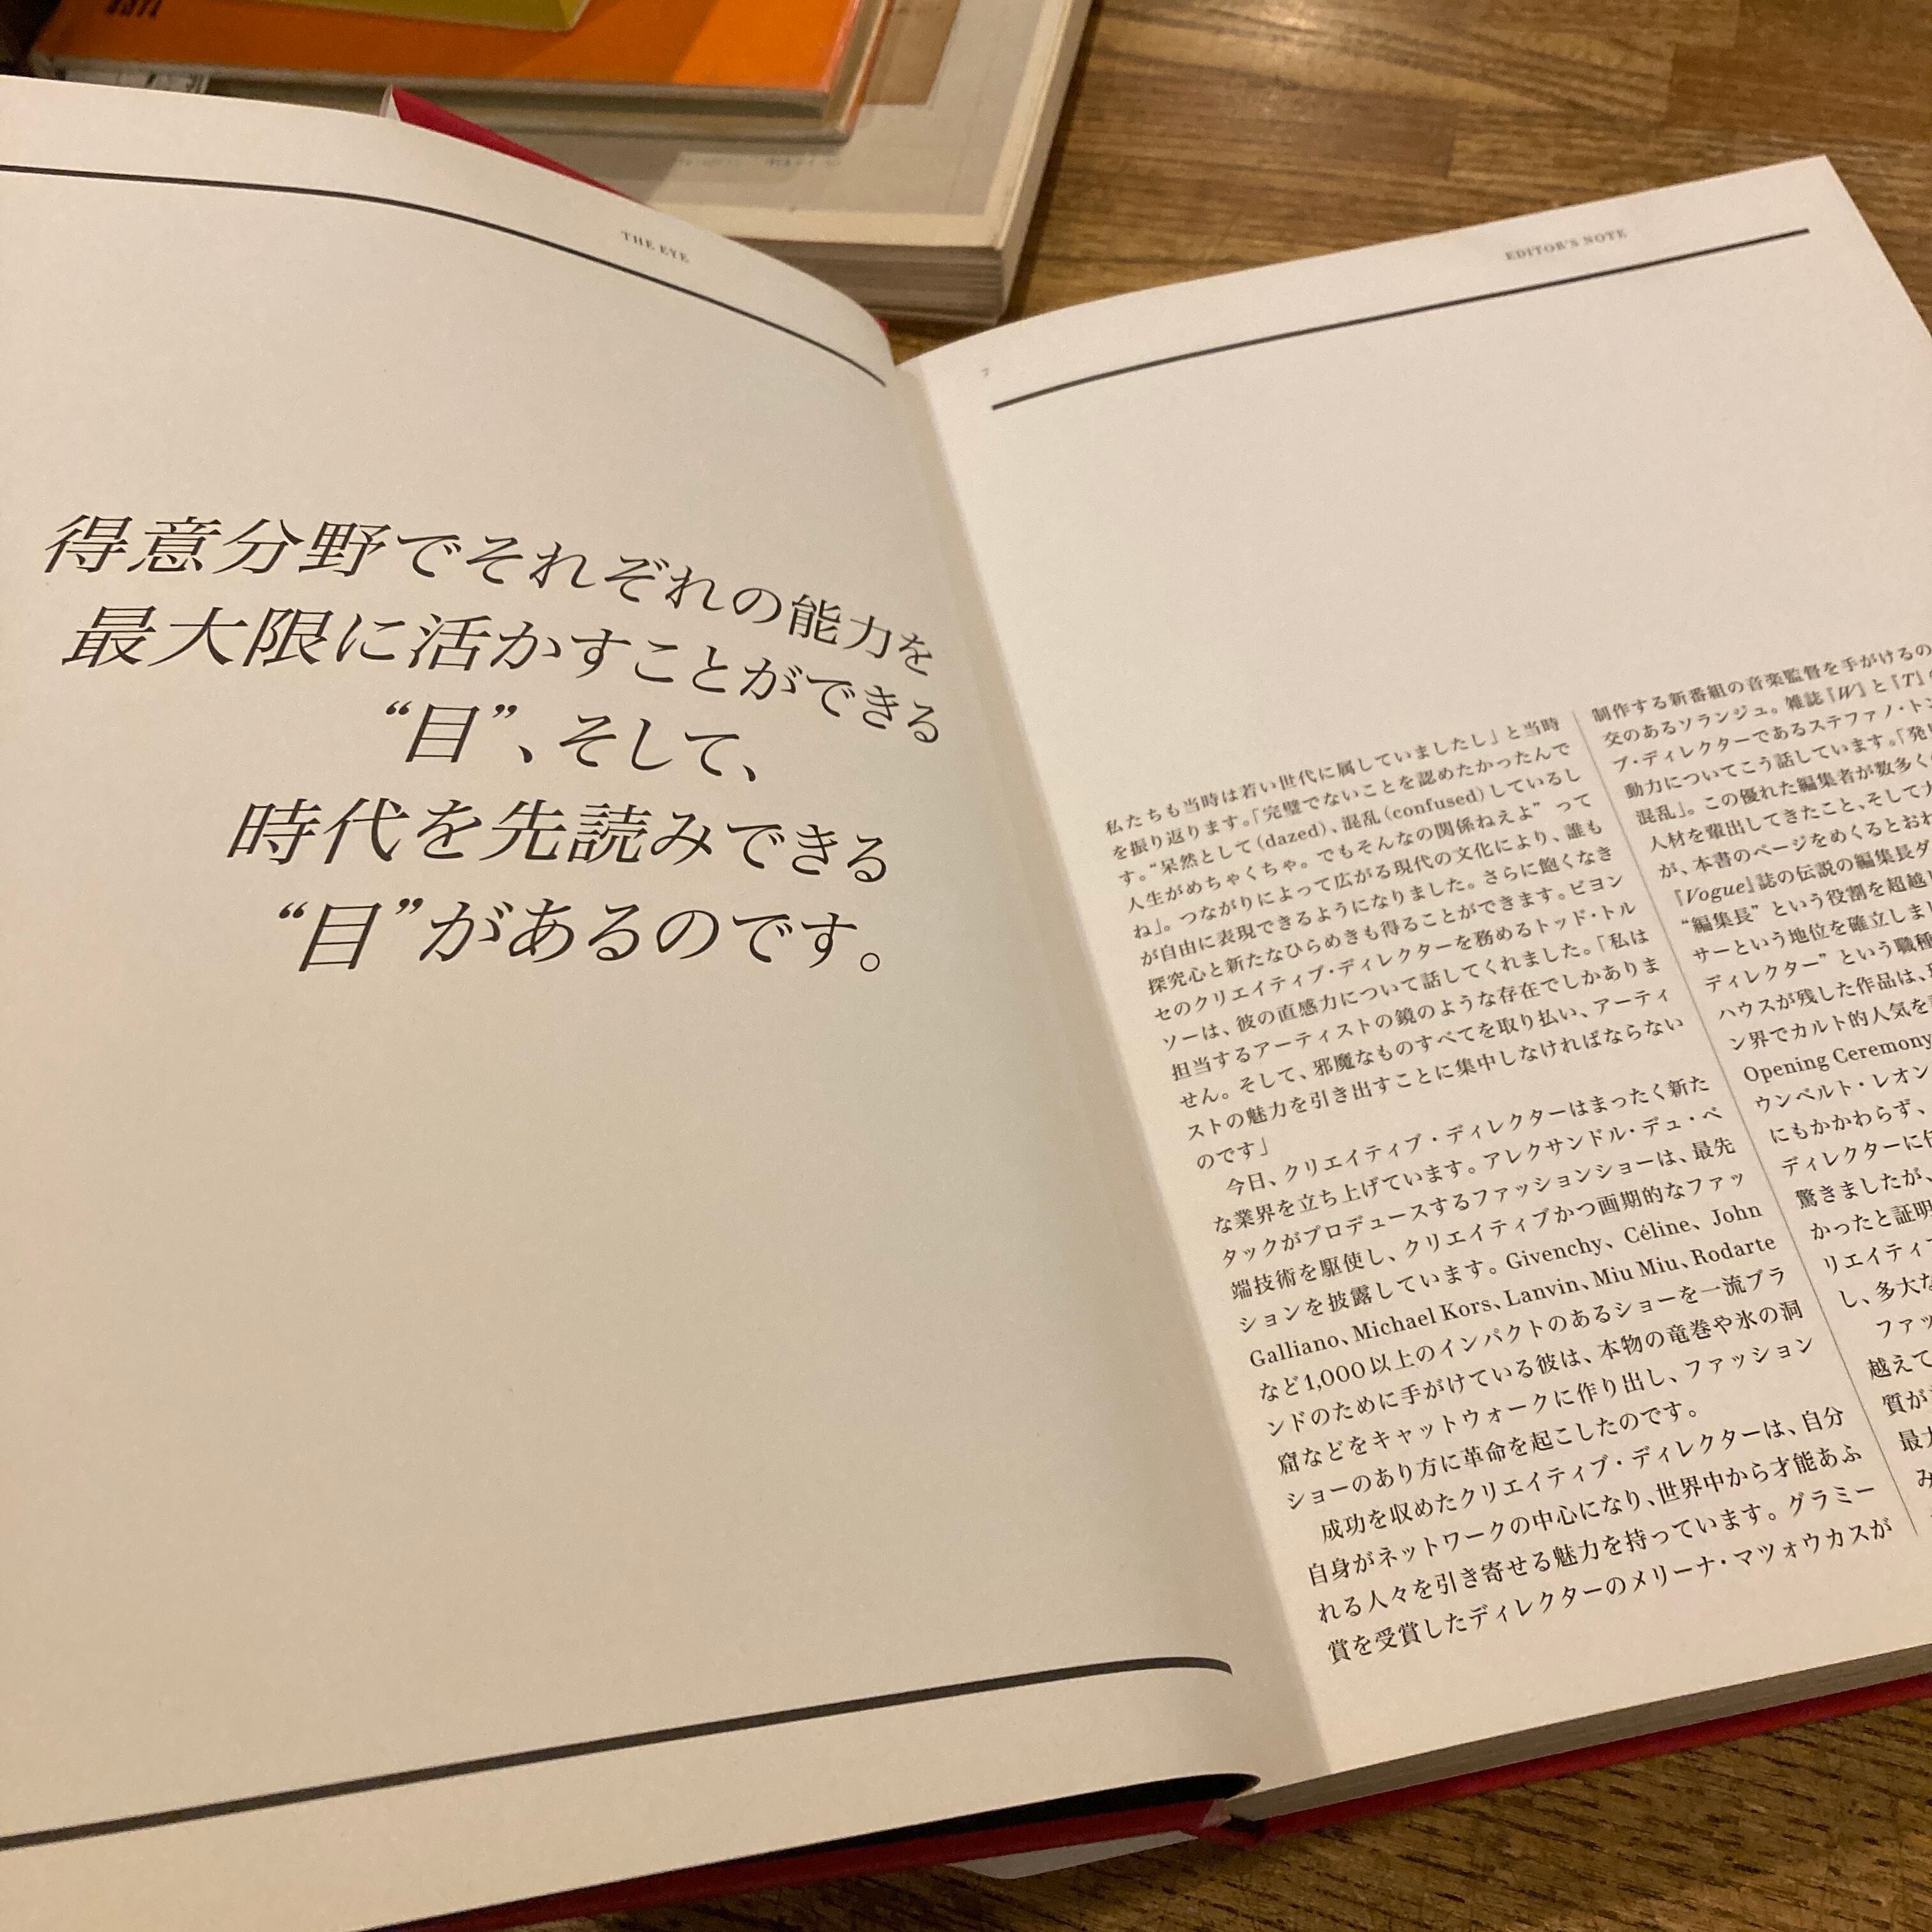 THE EYE
得意分野でそれぞれの能力を
最大限に活かすことができる
“目”、そして、
時代を先読みできる
“目”があるのです。
EDITOR'S NOTE
7
私たちも当時は若い世代に属していましたし」と当時
を振り返ります。「完璧でないことを認めたかったんで
す。“呆然として(dazed)、混乱(confused)しているし
人生がめちゃくちゃ。でもそんなの関係ねえよ” って
ね」。つながりによって広がる現代の文化により、誰も
が自由に表現できるようになりました。さらに飽くなき
探究心と新たなひらめきも得ることができます。ビヨン
セのクリエイティブ・ディレクターを務めるトッド・トル
ソーは、彼の直感力について話してくれました。「私は
担当するアーティストの鏡のような存在でしかありま
せん。そして、邪魔なものすべてを取り払い、アーティ
ストの魅力を引き出すことに集中しなければならない
のです」
今日、クリエイティブ・ディレクターはまったく新た
な業界を立ち上げています。アレクサンドル・デュ・ベ
タックがプロデュースするファッションショーは、最先
端技術を駆使し、クリエイティブかつ画期的なファッ
ションを披露しています。Givenchy、Céline、John
Galliano、Michael Kors、Lanvin、Miu Miu、Rodarte
など1,000以上のインパクトのあるショーを一流ブラ
ンドのために手がけている彼は、本物の竜巻や氷の洞
窟などをキャットウォークに作り出し、ファッション
ショーのあり方に革命を起こしたのです。
成功を収めたクリエイティブ・ディレクターは、自分
自身がネットワークの中心になり、世界中から才能あふ
れる人々を引き寄せる魅力を持っています。グラミー
賞を受賞したディレクターのメリーナ・マツォウカスが
制作する新番組の音楽監督を手がけるの
交のあるソランジュ。雑誌『W』と『T』
ブ・ディレクターであるステファノ・トン
動力についてこう話しています。「発
混乱」。この優れた編集者が数多く
人材を輩出してきたこと、そして
が、本書のページをめくるとおわ
『Vogue』誌の伝説の編集長ダ
“編集長” という役割を超越し
サーという地位を確立しまし
ディレクター” という職種
ハウスが残した作品は、
ン界でカルト的人気を
Opening Ceremony
ウンベルト・レオン
にもかかわらず、
ディレクターに
驚きましたが、
かったと証明
リエイティ
し、多大な
ファッ
越えて
質が
最
み